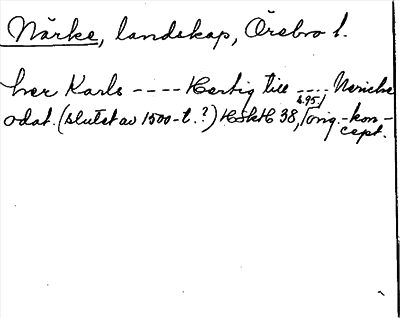 Närke, landskap, Örebro l.
her Karls ---- Hertig till ---- Nericke
odat. (slutet av 1500-t.?) HSkH 38, s.95, orig.-kon-
cept.